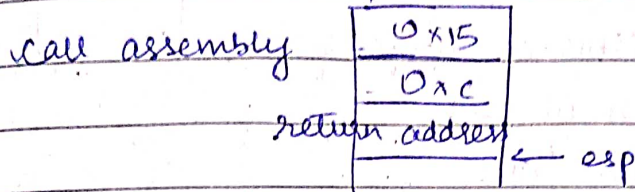 call assembly 0x15
0xc
return address
← esp